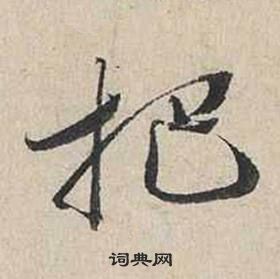 把
词典网